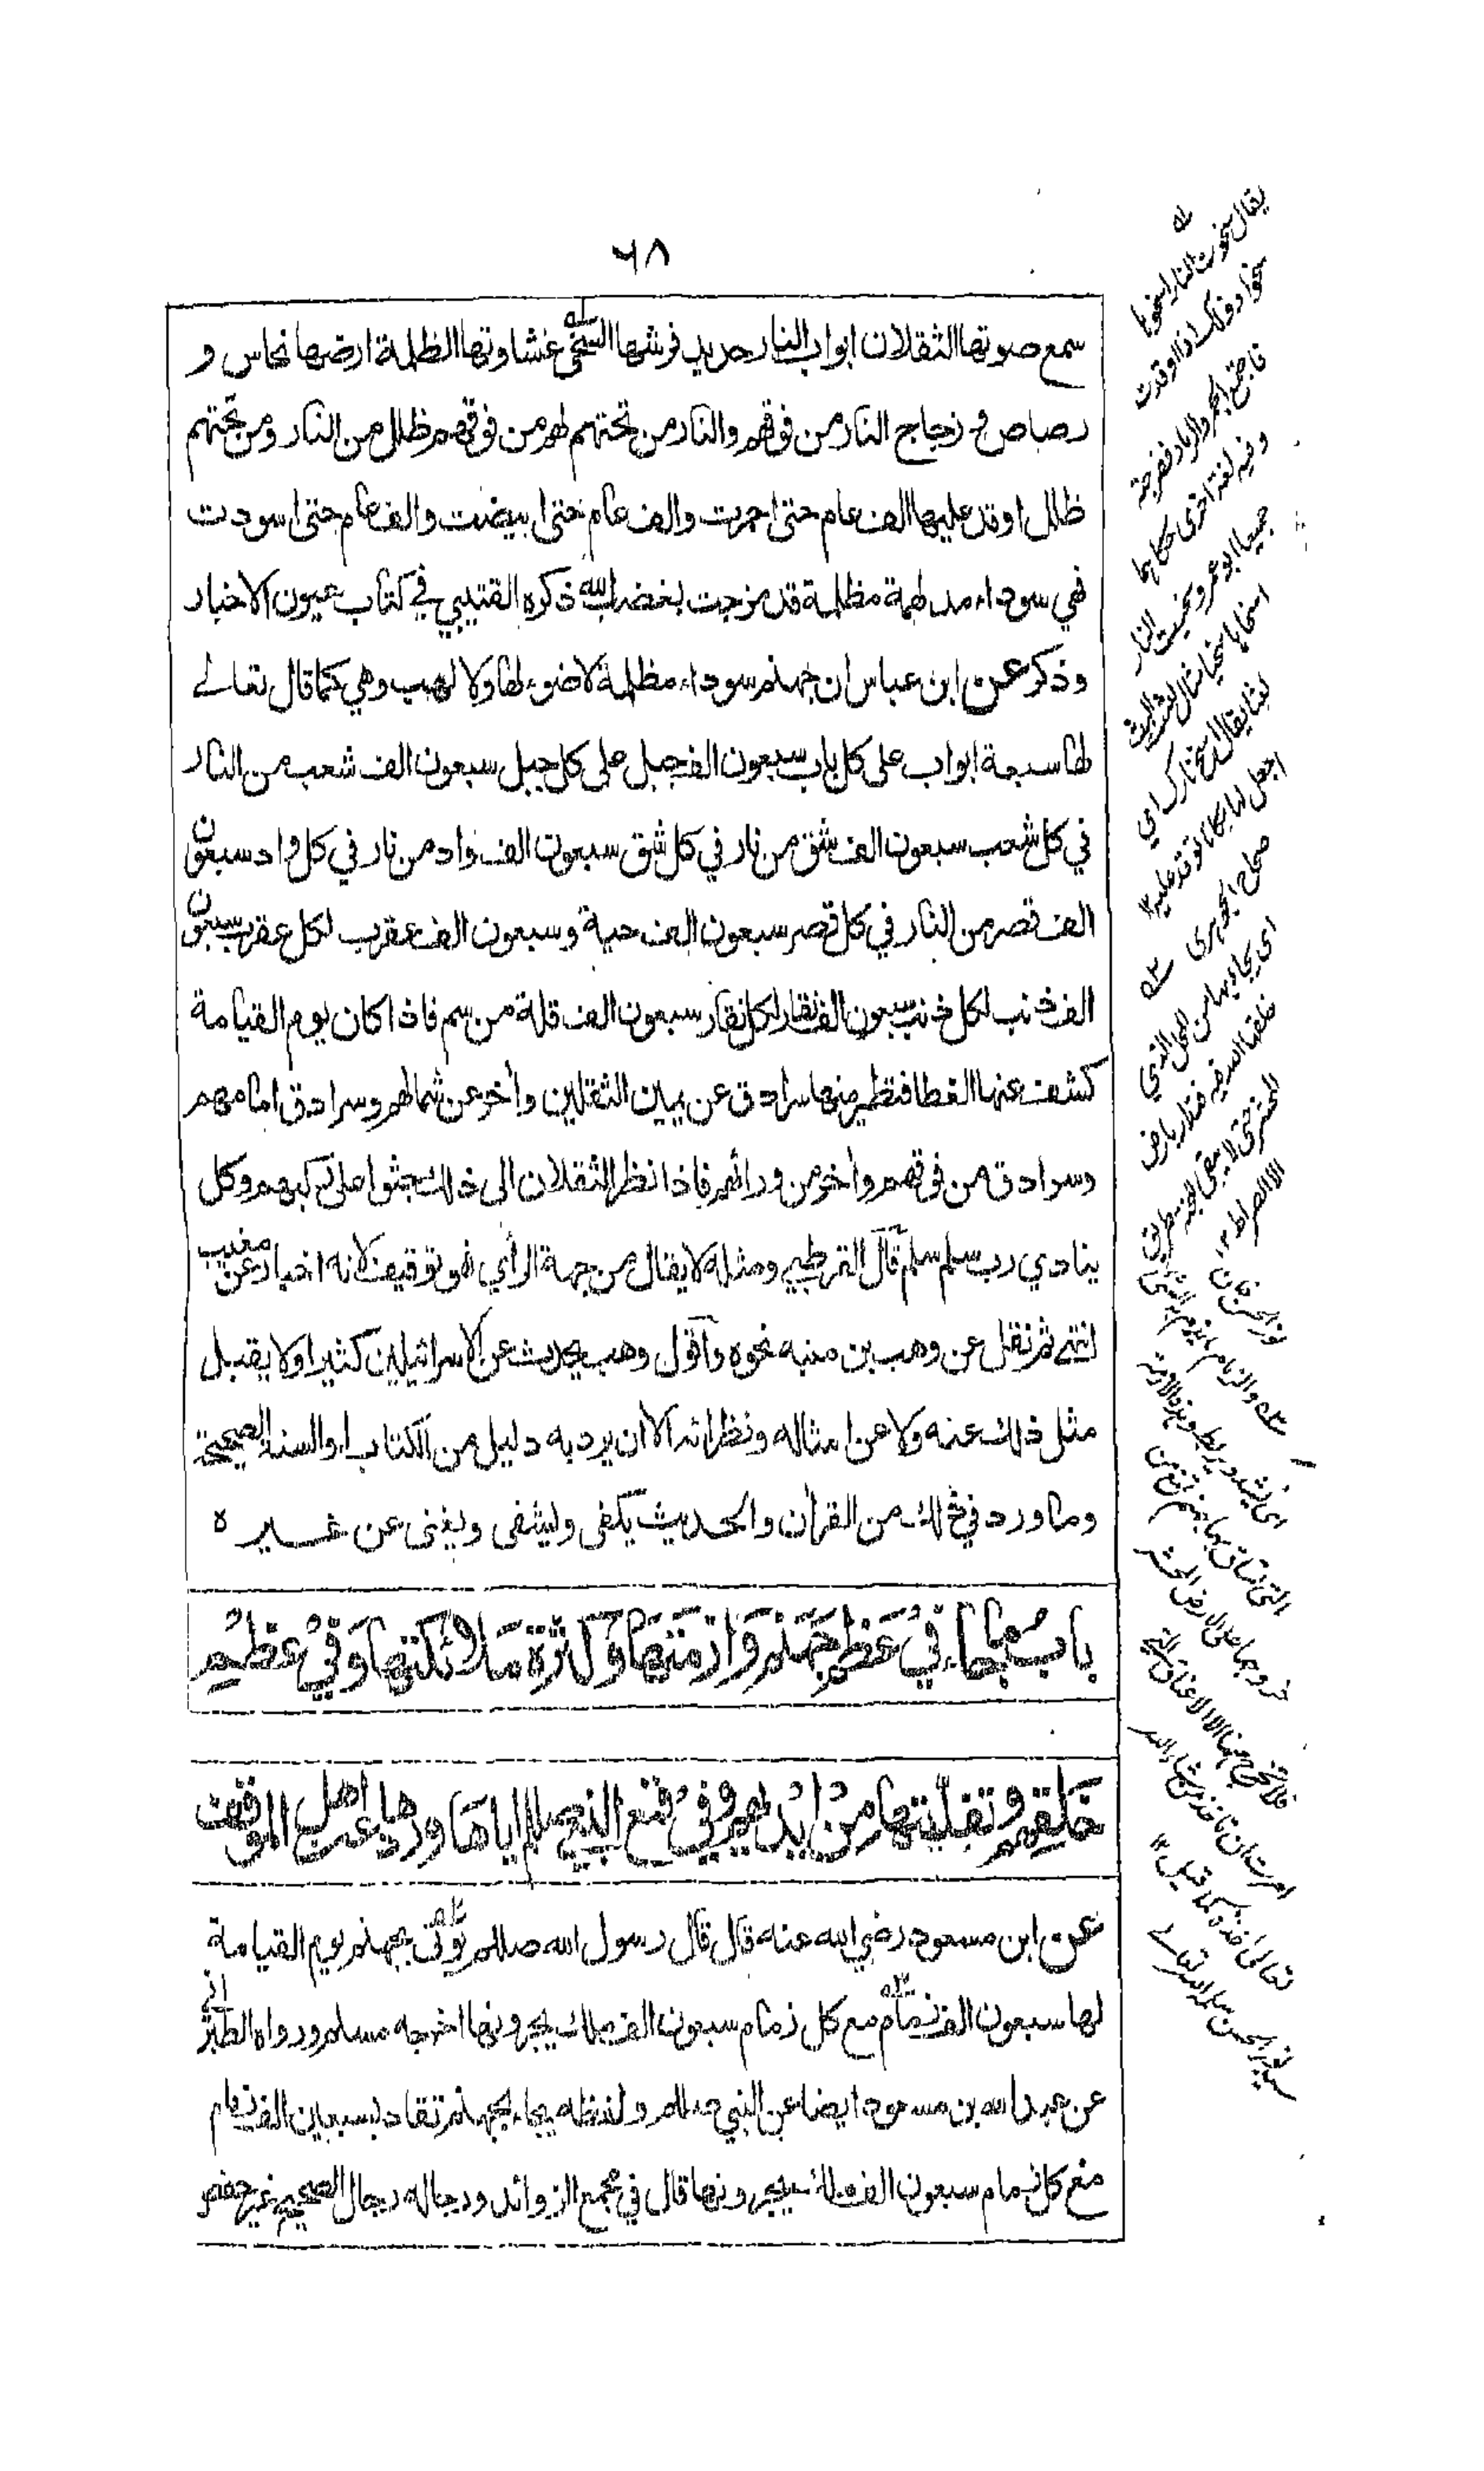 ٦٨
سمع صوتها الثقلان ابواب النار حديد فرشها السخى غشاوتها الظلمة ارضها نحاس و
رصاص و زجاج النار من فوقهم والنار من تحتهم لهم من فوقهم ظلل من النار ومن تحتهم
ظلل اوقد عليها الف عام حتى احمرت والف عام حتى ابيضت والف عام حتى اسودت
فهي سوداء مدلهمة مظلمة قد مزجت بغضب الله ذكره القتيبي في كتاب عيون الاخبار
وذكر عن ابن عباس ان جهنم سوداء مظلمة لا ضوء لها ولا لهيب وهي كما قال تعالى
لها سبعة ابواب على كل باب سبعون الف جبل على كل جبل سبعون الف شعب من النار
في كل شعب سبعون الف شق من نار في كل شق سبعون الف واد من نار في كل واد سبعون
الف قصر من النار في كل قصر سبعون الف حية وسبعون الف عقرب لكل عقرب سبعون
الف ذنب لكل ذنب سبعون الف نقار لكل نقار سبعون الف قلة من سم فاذا كان يوم القيامة
كشف عنها الغطا فتطير منها سرادق عن يمين الثقلين وأخر عن شمالهم وسرادق امامهم
وسرادق من فوقهم وأخر من ورائهم فاذا نظر الثقلان الى ذلك جثوا على ركبهم وكل
ينادي رب سلم سلم قال القرطبي ومثله لا يقال من جهة الرأي فهو توقيف لانه اخبار عن مغيب
انتهى ثم نقل عن وهب بن منبه نحوه وأقول وهب يحدث عن الاسرائيليين كثيرا ولا يقبل
مثل ذلك عنه ولا عن امثاله ونظرائه الا ان يرد به دليل من الكتاب او السنة الصحيحة
وما ورد في ذلك من القرأن والحديث يكفى ويشفى ويغنى عن غيره ٥
بابُ ما جاء في عَظم جَهَنم وَازمتها وَكثرة مَلائكتها وَفيْ عظيم
خَلقهم وتفلّتها مِنْ اَيْديهم وفيْ قمع النبي صللم اياها وردها عن اهل الموقف
عن ابن مسعود رضي الله عنه قال قال رسول الله صللم يؤتى بجهنم يوم القيامة
لها سبعون الف زمام مع كل زمام سبعون الف ملك يجرونها اخرجه مسلم ورواه الطبراني
عن عبد الله بن مسعود ايضا عن النبي صللم ولفظه يجاء بجهنم تقاد بسبعين الف زمام
مع كل زمام سبعون الف ملك يجرونها قال في مجمع الزوائد ورجاله رجال الصحيح غير حفص
يقال سخوت النار اسخوها
سخوا وذلك اذا اوقدت
فاجتمع الجمر والرماد ففرجته
وفيه لغة اخرى حكاهما
جميعا ابو عمرو سخيت النار
اسخاها سخيا مثال لبثت البث
لبثا يقال اسخ نارك اي
اجعل لها مكانا توقد عليه ١٢
صحاح الجوهرى
اى يجاء بها من المحل الذي
خلقها الله فيه فتدار بارض
المحشر حتى لا يبقى للجنة طريق
الا الصراط ١٢
نور الحسن خان